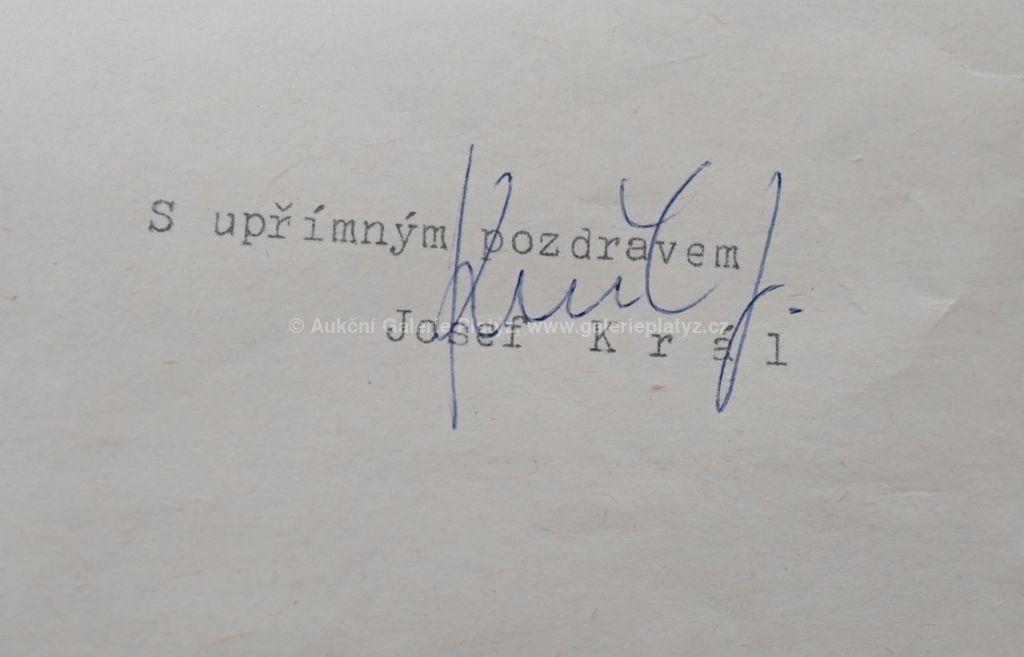 S upřímným pozdravem
Josef Král
© Aukční Galerie Platýz, www.galerieplatyz.cz